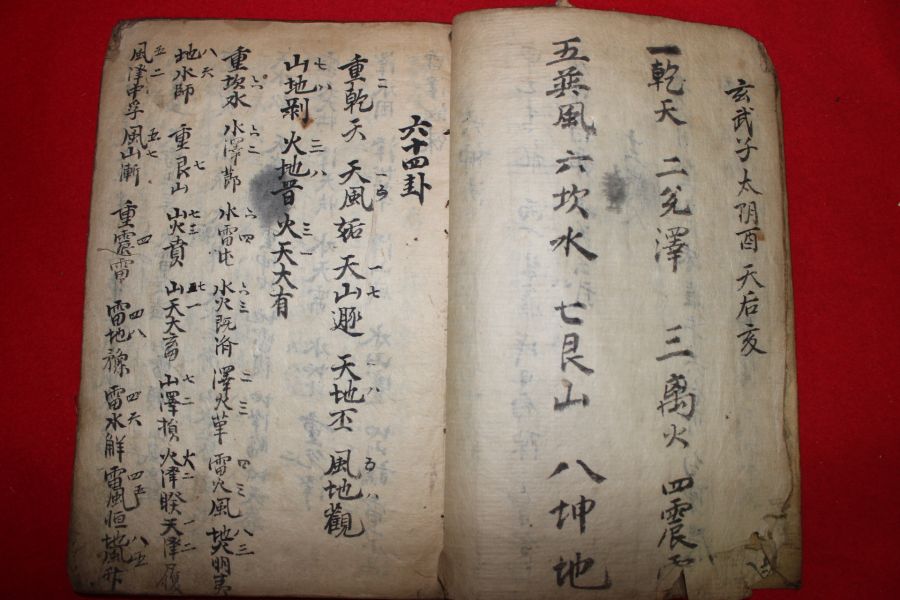 玄武子太阴酉天后亥
一乾天 二兌澤 三离火 四震
五巽風 六坎水 七艮山 八坤地
六十四卦
重乾天 天風姤 天山遯 天地否 風地觀
山地剝 火地晋 火天大有
重坎水 水澤節 水雷屯 水火既济 澤火革 雷火風 地火明夷
地水師 重艮山 山火賁 山天大畜 山澤損 火澤睽 天澤履
風澤中孚 風山漸 重震雷 雷地豫 雷水解 雷風恒 地風升